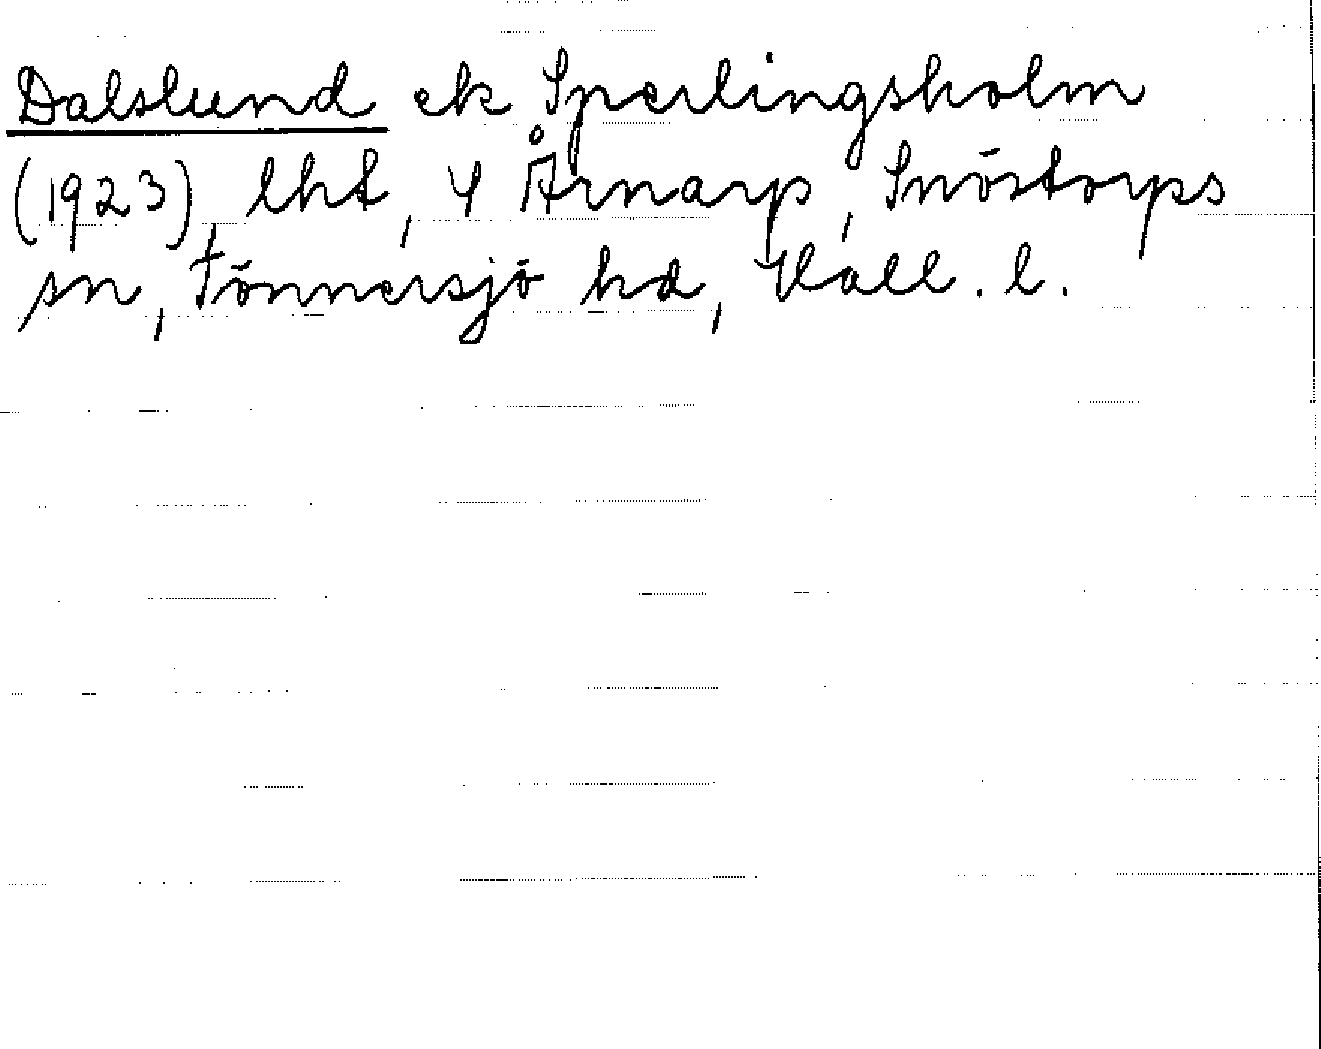 Dalslund ek Sperlingsholm
(1923) lht, 4 Årnarp, Snöstorps
sn, Tönnersjö hd, Hall. l.